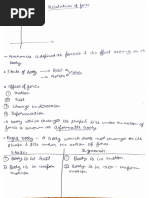 Resolution of force
→ Mechanics is defined as forces & its effect acting on the
body
→ State of body → Rest
→ Motion
→ Effect of force
① Motion
② Rest
③ Change in Direction
④ Deformation
→ Body which changes its shape & size under the action of
force is known as deformable body.
→ Rigid body - A body which does not change its
shape & size under the action of forces
Statics
Dynamic
① Body is at Rest
① Body is in motion
② Body is in
② Body is in non-uniform
motion